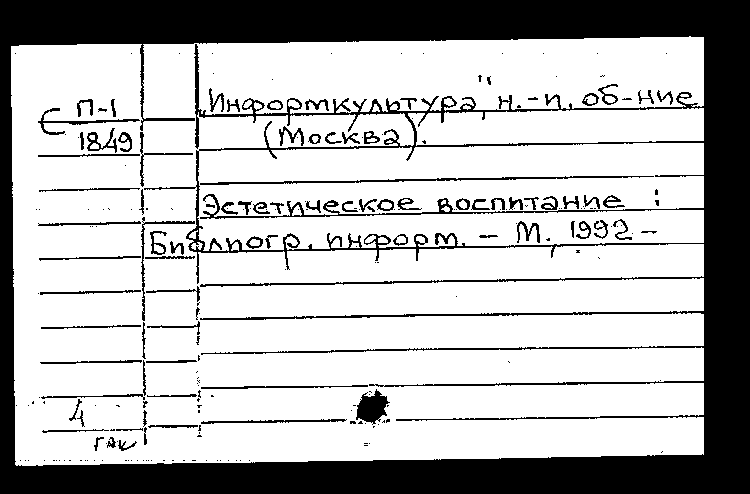 П-1
Є 1849
„Информкультура", н.-п. об-ние
(Москва).
Эстетическое воспитание :
Библиогр. информ. – М., 1992 –
4
ГАК